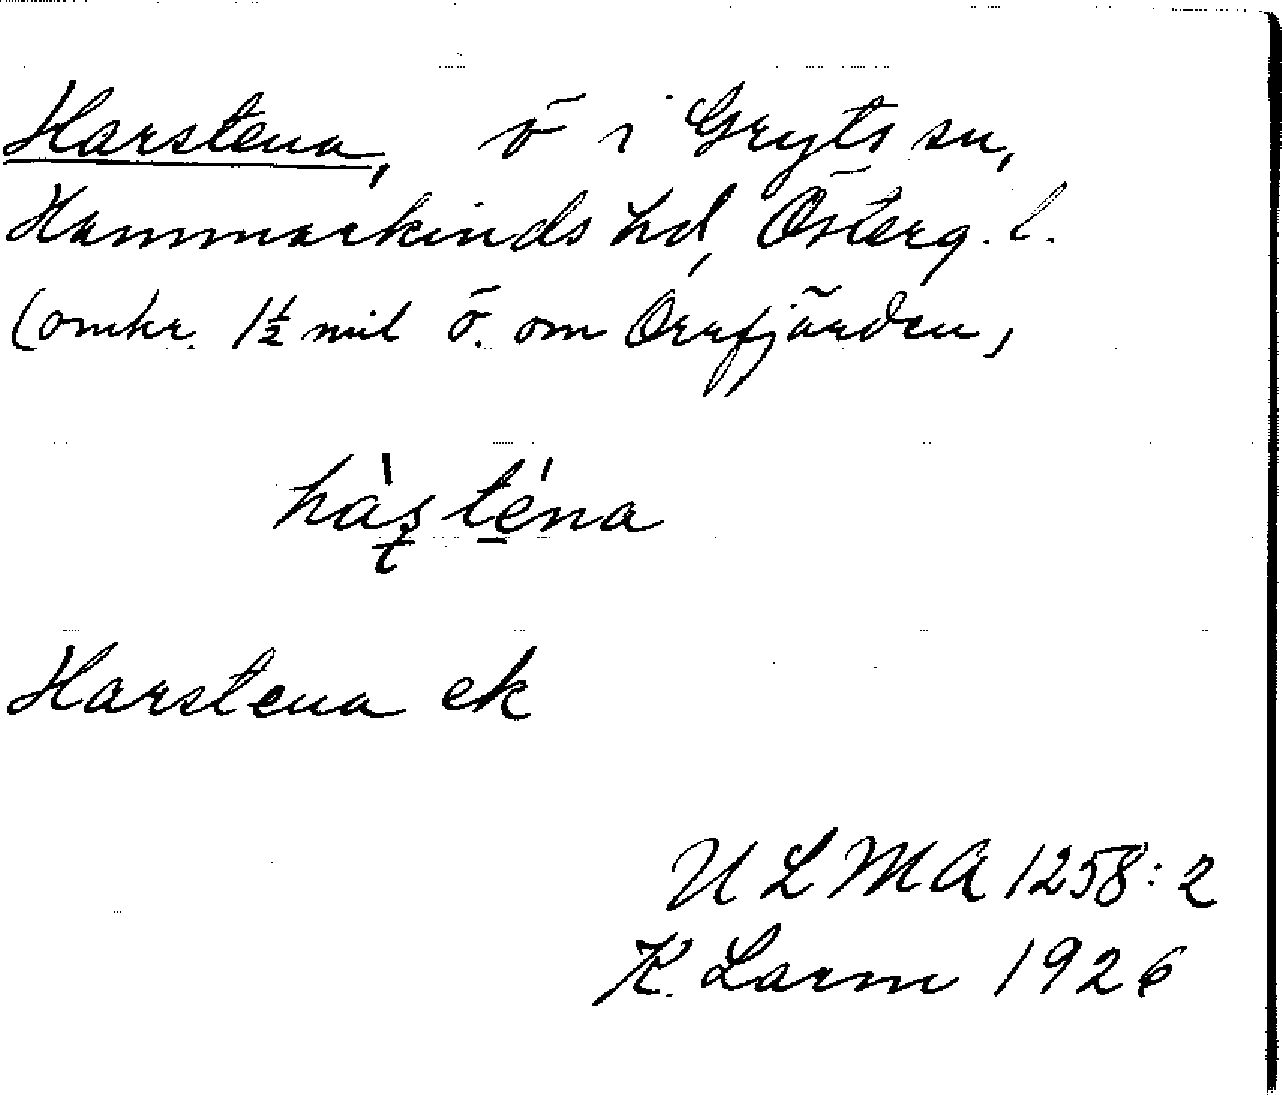 Harstena, ö i Gryts sn,
Hammarkinds hd, Österg. l.
(omkr. 1½ mil ö. om Orrfjärden,
hàs̱téna
Harstena ek
ULMA 1258:2
K. Larm 1926